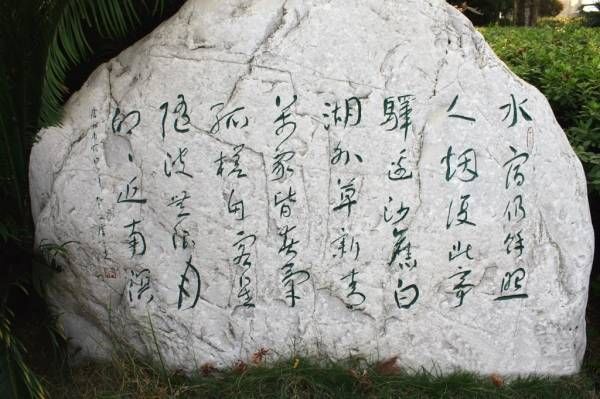 水宿仍餘照
人烟復此亭
驛邊沙舊白
湖外草新青
萬象皆春氣
孤槎自客星
隨波無限月
的々近南溟